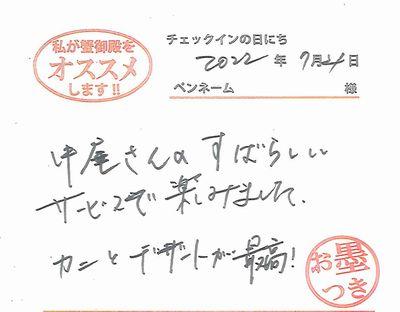 私が蟹御殿を
オススメ
します!!
チェックインの日にち
2022年 7月24日
ペンネーム 様
中尾さんのすばらしい
サービスで楽しみました。
カニとデザートが最高!
お墨
つき